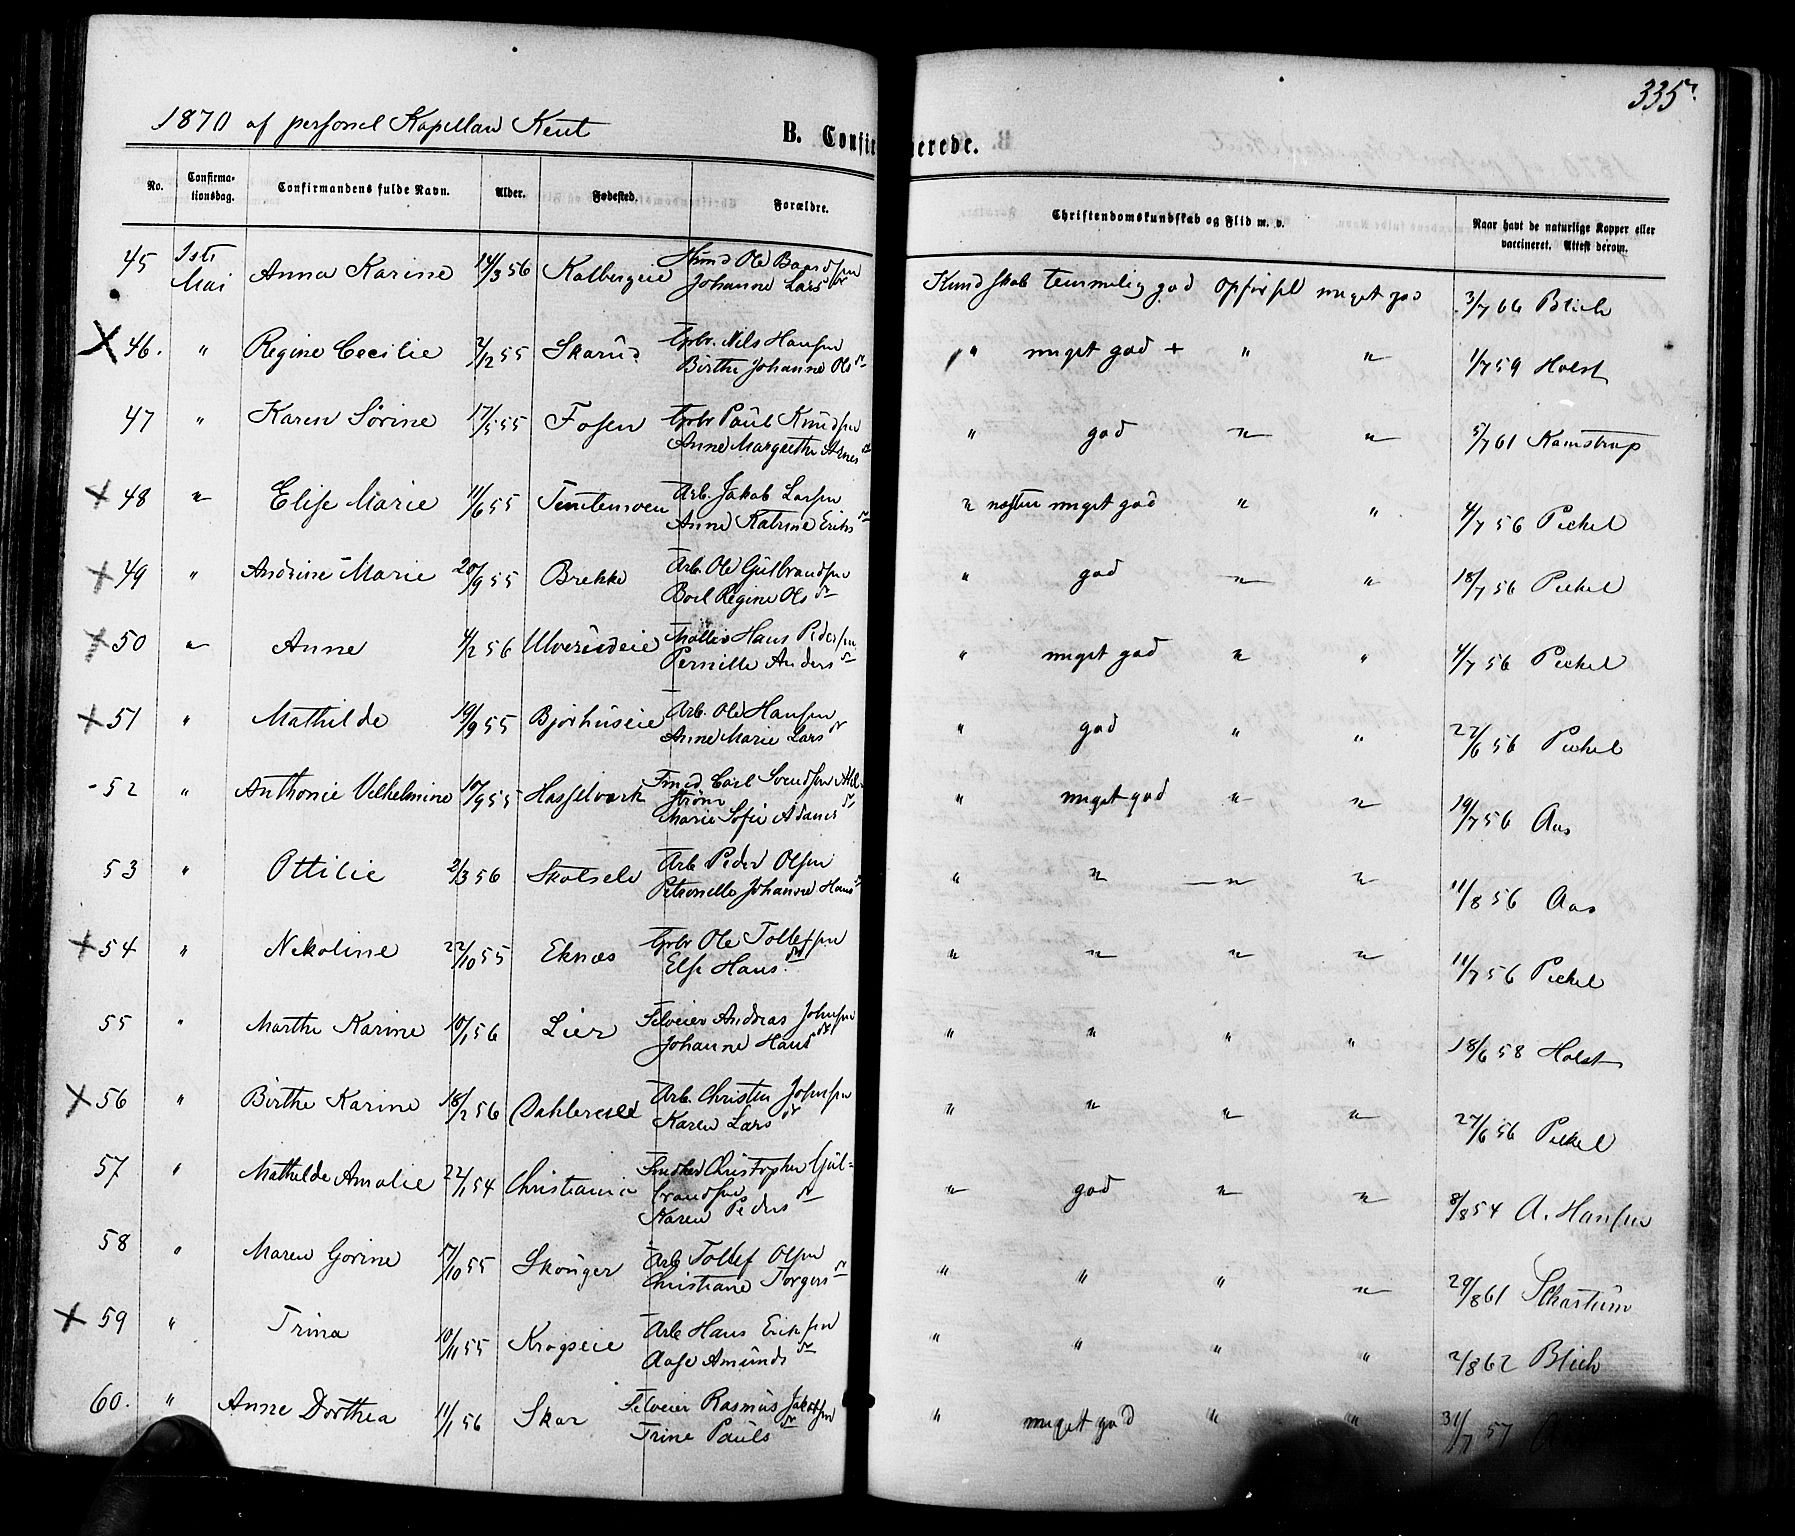 335.
1870 af personel Kapellan Keut
B. Confirmerede.
No. Confirma-tionsdag. Confirmandens fulde Navn. Alder. Fødested. Forældre. Christendomskundskab og Flid m. v. Naar havt de naturlige Kopper eller vaccineret. Attest derom.
45 1ste Mai Anna Karine 14/3 56 Kolbergeie Smed Ole Baardsen Kundskab temmelig god Opførsel meget god 3/7 66 Blich
Johanne Larsdr
46. " Regine Cecilie 2/12 55 Skarud Gbr. Nils Hansen " meget god + " " 1/7 59 Holst
Birthe Johanne Olsdr
47 " Karen Sørine 17/5 55 Fosen Gbr Paul Knudsen " god " " 5/7 61 Kamstrup
Anne Margrethe Arnesdr
48 " Elise Marie 11/6 55 Arb. Jakob Larsen " næsten meget god " " 4/7 56 Peckel
Anne Katrine Eriksdr
49 " Andrine Marie 20/9 55 Brekke Arb. Ole Gulbrandsen " god " " 18/7 56 Peckel
Boel Regine Olsdr
50 " Anne 4/2 56 Ulverudeie Møller Hans Pedersen " meget god " " 4/7 56 Peckel
Pernille Andersdr
51 " Mathilde 19/9 55 Bjørhuseie Arb. Ole Hansen " god " " 27/6 56 Peckel
Anne Marie Larsdr
52 " Anthonie Vilhelmine 10/9 55 Hasselværk Smed Carl Svendsen Ahl-
strøm " meget god " " 19/7 56 Aas
Marie Sofie Adamsdr
53 " Ottilie 2/3 56 Skotselv Arb Peder Olsen " " " " 11/8 56 Aas
Petronelle Johanne Hansdr
54 " Nikoline 22/10 55 Eknæs Gbr Ole Tollefsen " " " " 11/7 56 Peckel
Else Hansdr
55 " Marthe Karine 10/1 56 Lier Selveier Andreas Johnsen " " " " 18/6 58 Holst
Johanne Hansdr
56 " Birthe Karine 18/2 56 Arb. Christen Johnsen " " " " 27/6 56 Peckel
Karen Larsdr
57 " Mathilde Amalie 22/1 54 Christiania Snedker Christopher Gul-
brandsen " god " " 8/8 54 A. Hansen
Karen Pedersdr
58 " Maren Gorine 17/10 55 Skouger Arb Tollef Olsen " " " " 29/8 61 Schartum
Christiane Torgersdr
59 " Trina 10/11 55 Krogseie Arb Hans Eriksen " " " " 2/8 62 Blich
Aase Amundsdr
60. " Anne Dorthea 11/1 56 Skar Selveier Rasmus Jakobsen " meget god " " 31/7 57
Trine Paulsdr